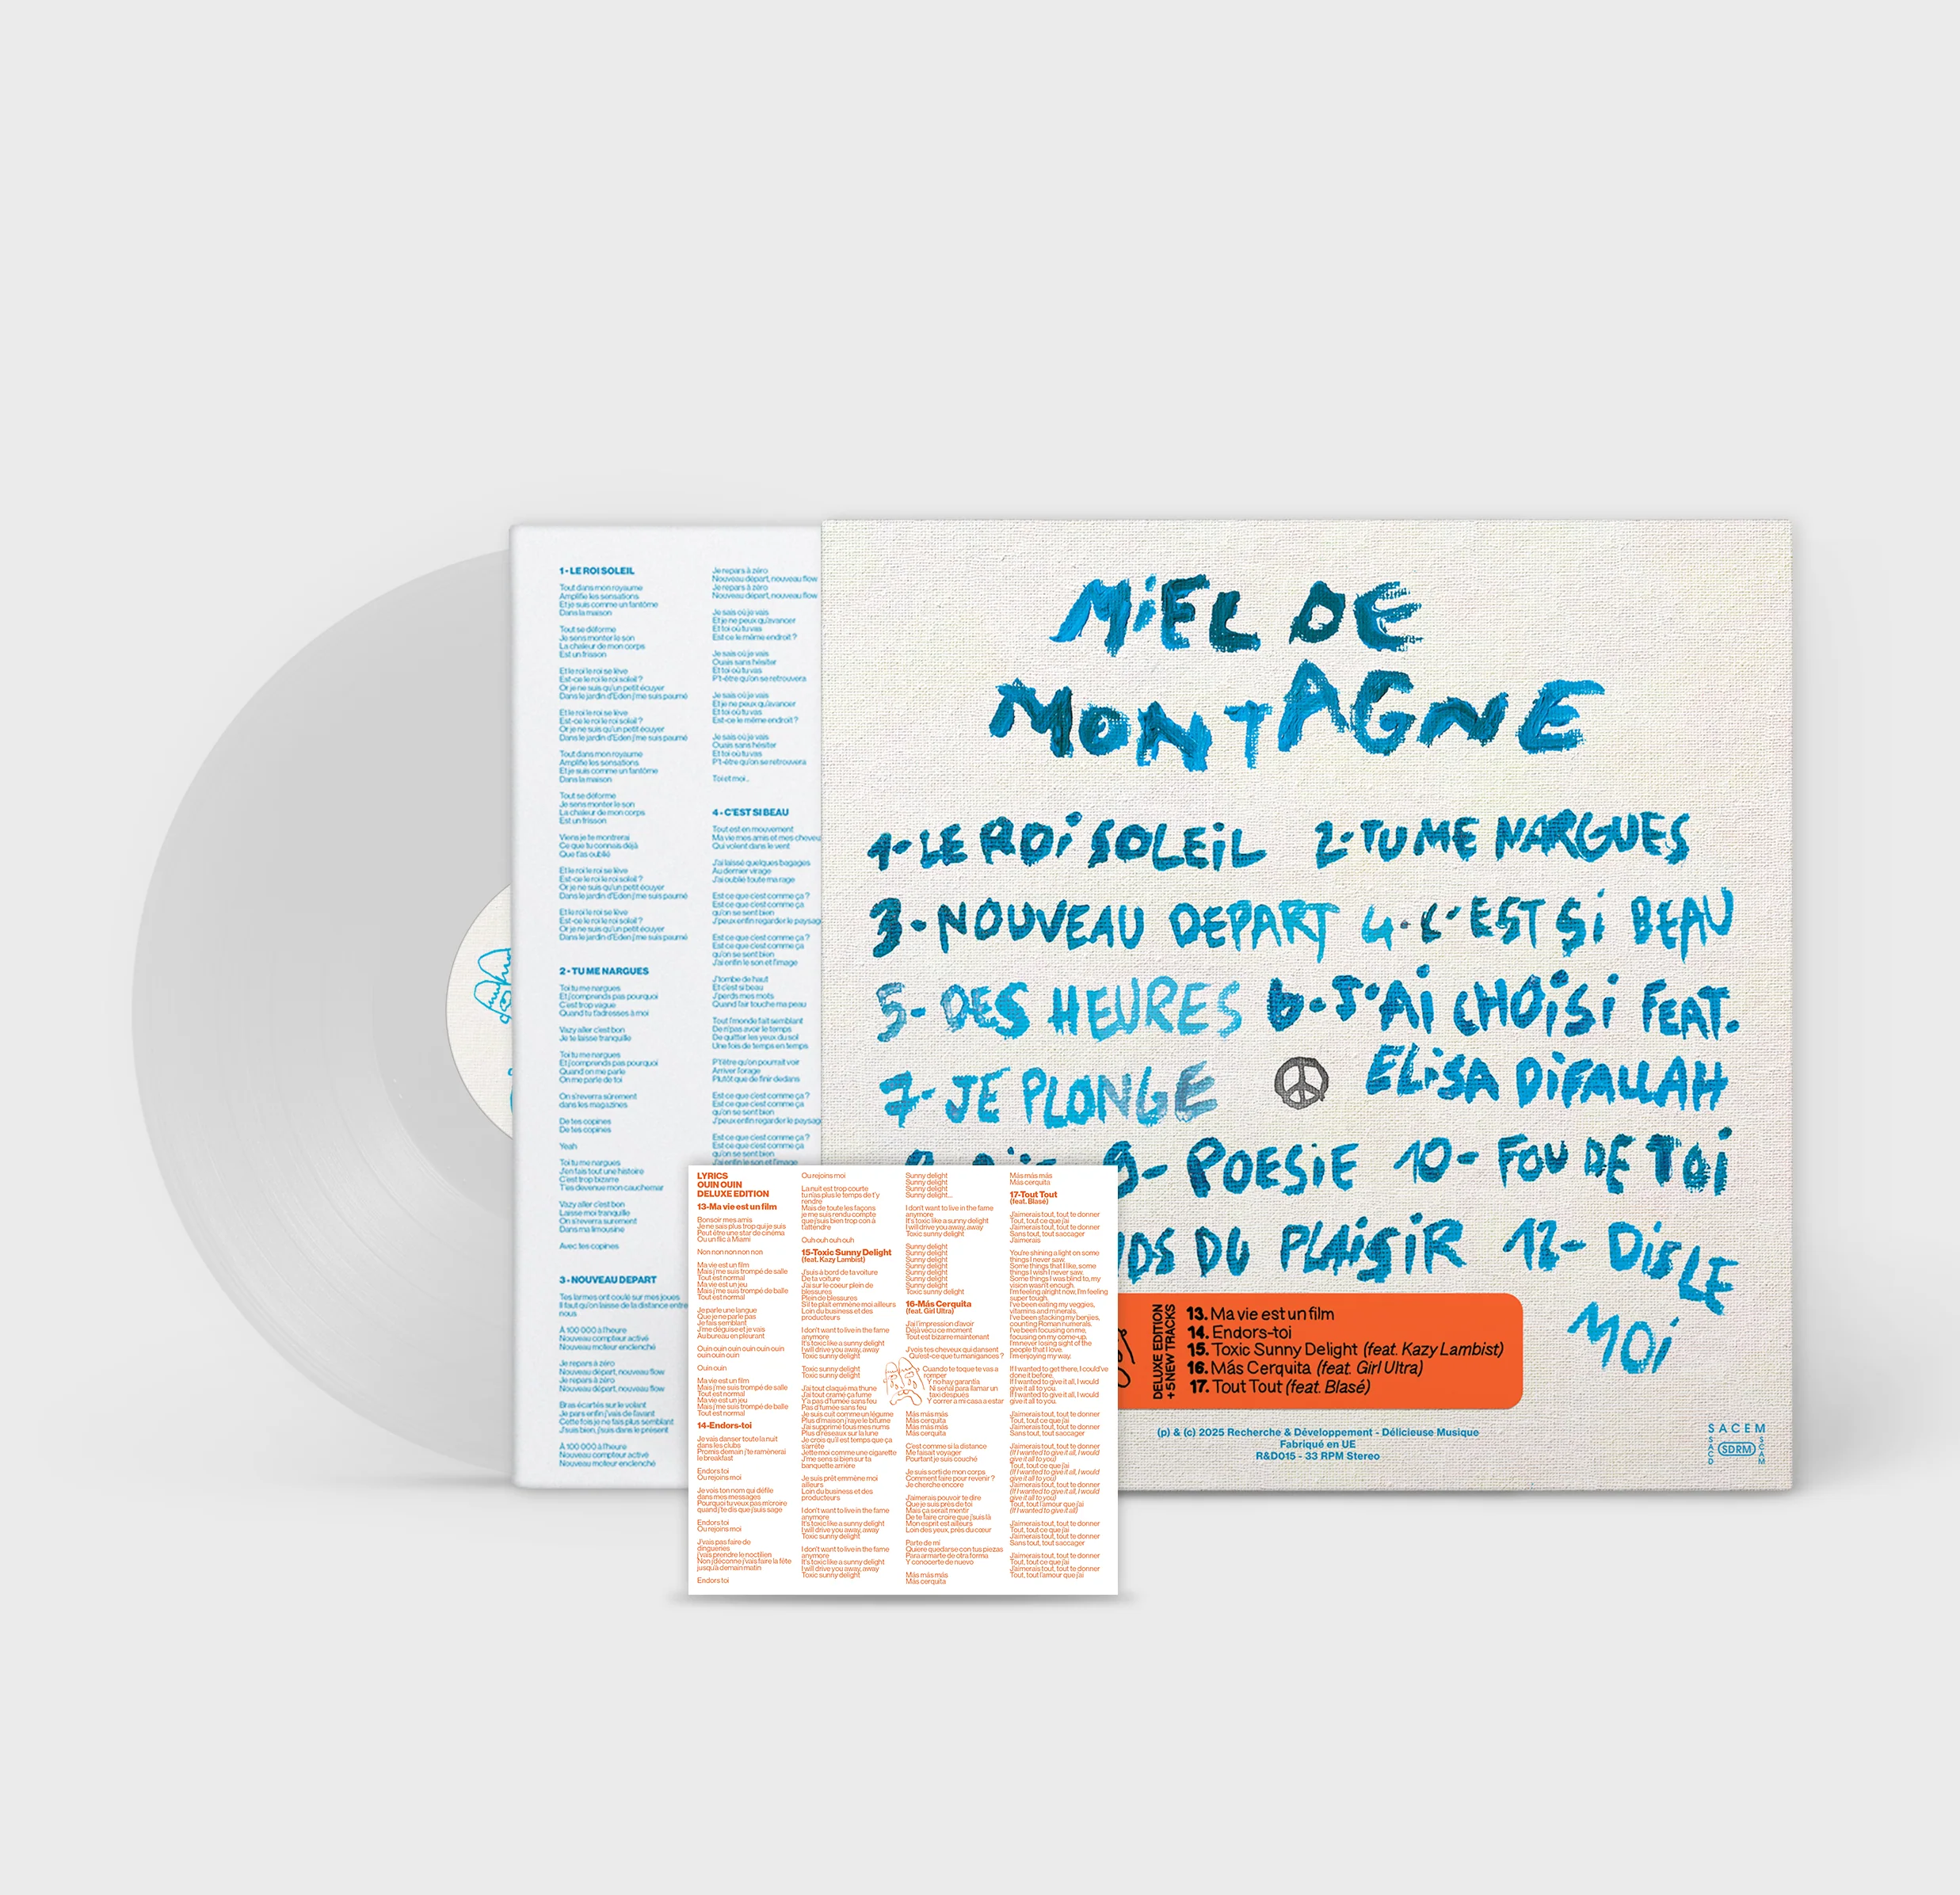 MiEL DE
MONTAGNE
1-LE ROi SOLEiL 2-TU ME NARGUES
3-NOUVEAU DEPART 4-C'EST Si BEAU
5-DES HEURES 6-J'Ai CHOiSi FEAT.
ELiSA DiFALLAH
7-JE PLONGE
9-POESiE 10-FOU DE TOi
DU PLAiSiR 12-DiS LE
MOi
DELUXE EDITION
+5 NEW TRACKS
13. Ma vie est un film
14. Endors-toi
15. Toxic Sunny Delight (feat. Kazy Lambist)
16. Más Cerquita (feat. Girl Ultra)
17. Tout Tout (feat. Blasé)
(p) & (c) 2025 Recherche & Développement - Délicieuse Musique
Fabriqué en UE
R&D015 - 33 RPM Stereo
SACEM
SACD
SDRM
SCAM
1 - LE ROI SOLEIL
Tout dans mon royaume
Amplifie les sensations
Et je suis comme un fantôme
Dans la maison
Tout se déforme
Je sens monter le son
La chaleur de mon corps
Est un frisson
Et le roi le roi se lève
Est-ce le roi le roi soleil ?
Or je ne suis qu'un petit écuyer
Dans le jardin d'Eden j'me suis paumé
Et le roi le roi se lève
Est-ce le roi le roi soleil ?
Or je ne suis qu'un petit écuyer
Dans le jardin d'Eden j'me suis paumé
Tout dans mon royaume
Amplifie les sensations
Et je suis comme un fantôme
Dans la maison
Tout se déforme
Je sens monter le son
La chaleur de mon corps
Est un frisson
Viens je te montrerai
Ce que tu connais déjà
Que t'as oublié
Et le roi le roi se lève
Est-ce le roi le roi soleil ?
Or je ne suis qu'un petit écuyer
Dans le jardin d'Eden j'me suis paumé
Et le roi le roi se lève
Est-ce le roi le roi soleil ?
Or je ne suis qu'un petit écuyer
Dans le jardin d'Eden j'me suis paumé
2 - TU ME NARGUES
Toi tu me nargues
Et j'comprends pas pourquoi
C'est trop vague
Quand tu t'adresses à moi
Vazy aller c'est bon
Je te laisse tranquille
Toi tu me nargues
Et j'comprends pas pourquoi
Quand on me parle
On me parle de toi
On s'reverra sûrement
dans les magazines
De tes copines
De tes copines
Yeah
Toi tu me nargues
J'en fais tout une histoire
C'est trop bizarre
T'es devenue mon cauchemar
Vazy aller c'est bon
Laisse moi tranquille
On s'reverra surement
Dans ma limousine
Avec tes copines
3 - NOUVEAU DEPART
Tes larmes ont coulé sur mes joues
Il faut qu'on laisse de la distance entre
nous
À 100 000 à l'heure
Nouveau compteur activé
Nouveau moteur enclenché
Je repars à zéro
Nouveau départ, nouveau flow
Je repars à zéro
Nouveau départ, nouveau flow
Bras écartés sur le volant
Je pars enfin j'vais de l'avant
Cette fois je ne fais plus semblant
J'suis bien, j'suis dans le présent
À 100 000 à l'heure
Nouveau compteur activé
Nouveau moteur enclenché
Je repars à zéro
Nouveau départ, nouveau flow
Je repars à zéro
Nouveau départ, nouveau flow
Je sais où je vais
Et je ne peux qu'avancer
Et toi où tu vas
Est ce le même endroit ?
Je sais où je vais
Ouais sans hésiter
Et toi où tu vas
P't-être qu'on se retrouvera
Je sais où je vais
Et je ne peux qu'avancer
Et toi où tu vas
Est-ce le même endroit ?
Je sais où je vais
Ouais sans hésiter
Et toi où tu vas
P't-être qu'on se retrouvera
Toi et moi...
4 - C'EST SI BEAU
Tout est en mouvement
Ma vie mes amis et mes cheveu
Qui volent dans le vent
J'ai laissé quelques bagages
Au dernier virage
J'ai oublié toute ma rage
Est ce que c'est comme ça ?
Est ce que c'est comme ça
qu'on se sent bien
J'peux enfin regarder le paysag
Est ce que c'est comme ça ?
Est ce que c'est comme ça
qu'on se sent bien
J'ai enfin le son et l'image
J'tombe de haut
Et c'est si beau
J'perds mes mots
Quand l'air touche ma peau
Tout l'monde fait semblant
De n'pas avoir le temps
De quitter les yeux du sol
Une fois de temps en temps
P't'être qu'on pourrait voir
Arriver l'orage
Plutôt que de finir dedans
Est ce que c'est comme ça ?
Est ce que c'est comme ça
qu'on se sent bien
J'peux enfin regarder le paysag
Est ce que c'est comme ça ?
Est ce que c'est comme ça
qu'on se sent bien
J'ai enfin le son et l'image
LYRICS
OUIN OUIN
DELUXE EDITION
13-Ma vie est un film
Bonsoir mes amis
Je ne sais plus trop qui je suis
Peut être une star de cinéma
Ou un flic à Miami
Non non non non non
Ma vie est un film
Mais j'me suis trompé de salle
Tout est normal
Ma vie est un jeu
Mais j'me suis trompé de balle
Tout est normal
Je parle une langue
Que je ne parle pas
Je fais semblant
J'me déguise et je vais
Au bureau en pleurant
Ouin ouin ouin ouin ouin ouin
ouin ouin ouin
Ouin ouin
Ma vie est un film
Mais j'me suis trompé de salle
Tout est normal
Ma vie est un jeu
Mais j'me suis trompé de balle
Tout est normal
14-Endors-toi
Je vais danser toute la nuit
dans les clubs
Promis demain j'te ramènerai
le breakfast
Endors toi
Ou rejoins moi
Je vois ton nom qui défile
dans mes messages
Pourquoi tu veux pas m'croire
quand j'te dis que j'suis sage
Endors toi
Ou rejoins moi
J'vais pas faire de
dingueries
j'vais prendre le noctilien
Non j'déconne j'vais faire la fête
jusqu'à demain matin
Endors toi
Ou rejoins moi
La nuit est trop courte
tu n'as plus le temps de t'y
rendre
Mais de toute les façons
je me suis rendu compte
que j'suis bien trop con à
t'attendre
Ouh ouh ouh ouh
15-Toxic Sunny Delight
(feat. Kazy Lambist)
J'suis à bord de ta voiture
De ta voiture
J'ai sur le coeur plein de
blessures
Plein de blessures
S'il te plait emmène moi ailleurs
Loin du business et des
producteurs
I don't want to live in the fame
anymore
It's toxic like a sunny delight
I will drive you away, away
Toxic sunny delight
Toxic sunny delight
Toxic sunny delight
J'ai tout claqué ma thune
J'ai tout cramé ça fume
Y'a pas d'fumée sans feu
Pas d'fumée sans feu
Je suis cuit comme un légume
Plus d'maison j'raye le bitume
J'ai supprimé tous mes nums
Plus d'réseaux sur la lune
Je crois qu'il est temps que ça
s'arrête
Jette moi comme une cigarette
J'me sens si bien sur ta
banquette arrière
Je suis prêt emmène moi
ailleurs
Loin du business et des
producteurs
I don't want to live in the fame
anymore
It's toxic like a sunny delight
I will drive you away, away
Toxic sunny delight
I don't want to live in the fame
anymore
It's toxic like a sunny delight
I will drive you away, away
Toxic sunny delight
Sunny delight
Sunny delight
Sunny delight
Sunny delight...
I don't want to live in the fame
anymore
It's toxic like a sunny delight
I will drive you away, away
Toxic sunny delight
Sunny delight
Sunny delight
Sunny delight
Sunny delight
Sunny delight
Sunny delight
Sunny delight
Toxic sunny delight
16-Más Cerquita
(feat. Girl Ultra)
J'ai l'impression d'avoir
Déjà vécu ce moment
Tout est bizarre maintenant
J'vois tes cheveux qui dansent
Qu'est-ce que tu manigances ?
Cuando te toque te vas a
romper
Y no hay garantía
Ni señal para llamar un
taxi después
Y correr a mi casa a estar
Más más más
Más cerquita
Más más más
Más cerquita
C'est comme si la distance
Me faisait voyager
Pourtant je suis couché
Je suis sorti de mon corps
Comment faire pour revenir ?
Je cherche encore
J'aimerais pouvoir te dire
Que je suis près de toi
Mais ça serait mentir
De te faire croire que j'suis là
Mon esprit est ailleurs
Loin des yeux, près du cœur
Parte de mi
Quiere quedarse con tus piezas
Para armarte de otra forma
Y conocerte de nuevo
Más más más
Más cerquita
Más más más
Más cerquita
17-Tout Tout
(feat. Blasé)
J'aimerais tout, tout te donner
Tout, tout ce que j'ai
J'aimerais tout, tout te donner
Sans tout, tout saccager
J'aimerais
You're shining a light on some
things I never saw.
Some things that I like, some
things I wish I never saw.
Some things I was blind to, my
vision wasn't enough.
I'm feeling alright now, I'm feeling
super tough.
I've been eating my veggies,
vitamins and minerals.
I've been stacking my benjies,
counting Roman numerals.
I've been focusing on me,
focusing on my come-up.
I'm never losing sight of the
people that I love.
I'm enjoying my way.
If I wanted to get there, I could've
done it before.
If I wanted to give it all, I would
give it all to you.
If I wanted to give it all, I would
give it all to you.
J'aimerais tout, tout te donner
Tout, tout ce que j'ai
J'aimerais tout, tout te donner
Sans tout, tout saccager
J'aimerais tout, tout te donner
(If I wanted to give it all, I would
give it all to you)
Tout, tout ce que j'ai
(If I wanted to give it all, I would
give it all to you)
J'aimerais tout, tout te donner
(If I wanted to give it all, I would
give it all to you)
Tout, tout l'amour que j'ai
(If I wanted to give it all)
J'aimerais tout, tout te donner
Tout, tout ce que j'ai
J'aimerais tout, tout te donner
Sans tout, tout saccager
J'aimerais tout, tout te donner
Tout, tout ce que j'ai
J'aimerais tout, tout te donner
Tout, tout l'amour que j'ai